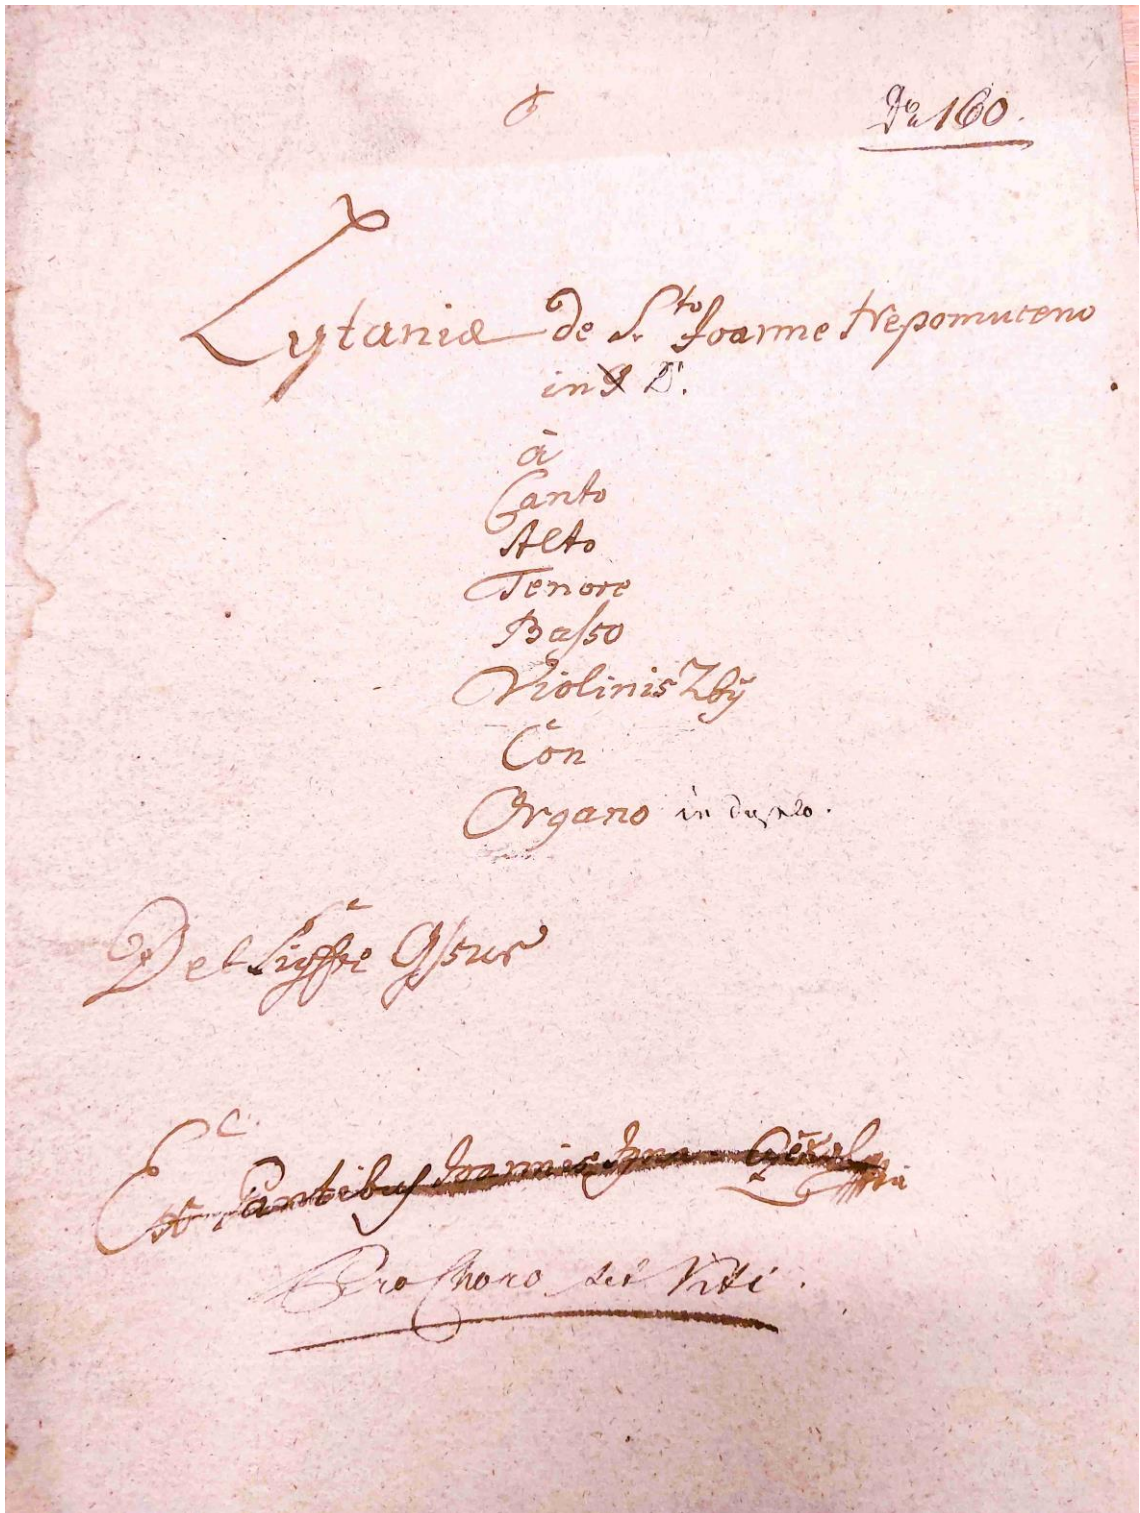 160.
Lytaniæ de S.to Joanne Nepomuceno
in D.
à
Canto
Alto
Tenore
Basso
Violinis 2bÿ
Con
Organo in duplo.
Del Sig̃re
Ex Partibus Joannis
Pro Choro Sti Viti.